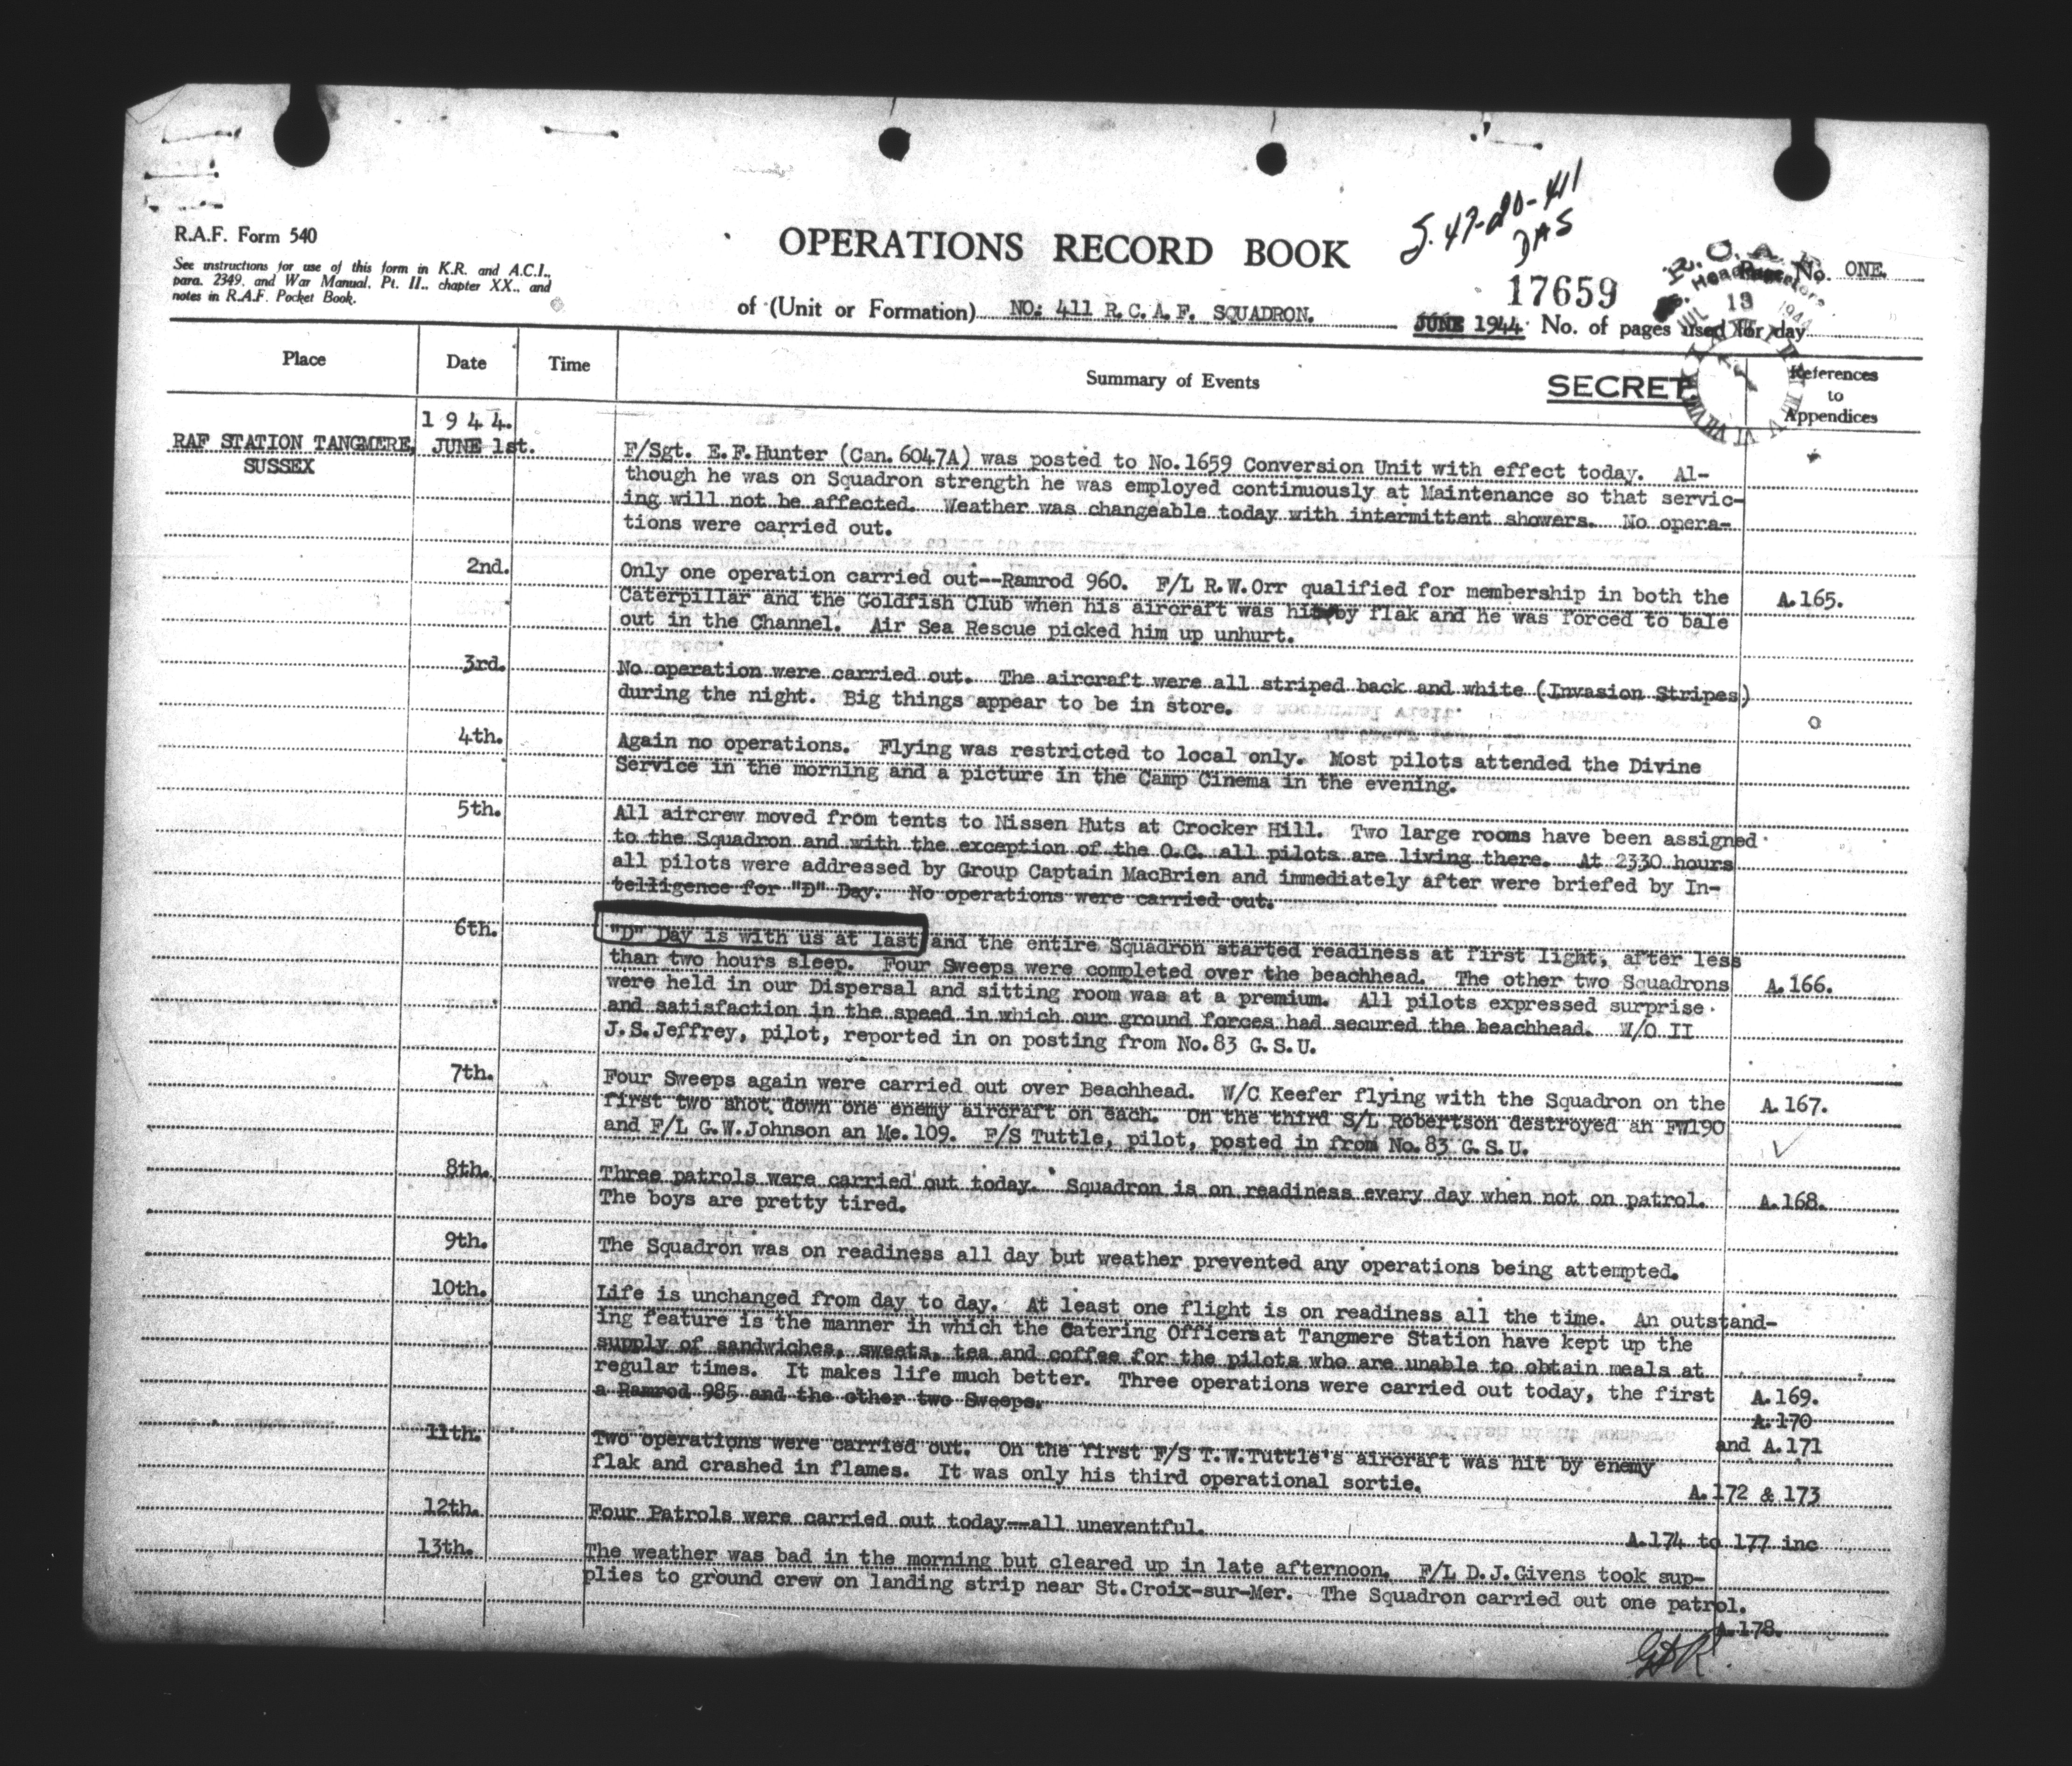 S. 47-20-411
DAS
R.A.F. Form 540
See instructions for use of this form in K.R. and A.C.I.,
para. 2349, and War Manual, Pt. II., chapter XX., and
notes in R.A.F. Pocket Book.
OPERATIONS RECORD BOOK
R.C.A.F.
Headquarters
Page No. ONE.
17659
13
1944
of (Unit or Formation) NO: 411 R.C.A.F. SQUADRON.
JUNE 1944 No. of pages used for day
Place Date Time Summary of Events SECRET References
to
Appendices
1944.
RAF STATION TANGMERE, JUNE 1st.
SUSSEX
F/Sgt. E.F.Hunter (Can.6047A) was posted to No.1659 Conversion Unit with effect today. Al-
though he was on Squadron strength he was employed continuously at Maintenance so that servic-
ing will not be affected. Weather was changeable today with intermittent showers. No opera-
tions were carried out.
2nd. Only one operation carried out--Ramrod 960. F/L R.W.Orr qualified for membership in both the A.165.
Caterpillar and the Goldfish Club when his aircraft was hit by flak and he was forced to bale
out in the Channel. Air Sea Rescue picked him up unhurt.
3rd. No operation were carried out. The aircraft were all striped back and white (Invasion Stripes)
during the night. Big things appear to be in store.
4th. Again no operations. Flying was restricted to local only. Most pilots attended the Divine
Service in the morning and a picture in the Camp Cinema in the evening.
5th. All aircrew moved from tents to Nissen Huts at Crocker Hill. Two large rooms have been assigned
to the Squadron and with the exception of the O.C. all pilots are living there. At 2330 hours
all pilots were addressed by Group Captain MacBrien and immediately after were briefed by In-
telligence for "D" Day. No operations were carried out.
6th. "D" Day is with us at last and the entire Squadron started readiness at first light, after less
than two hours sleep. Four Sweeps were completed over the beachhead. The other two Squadrons A.166.
were held in our Dispersal and sitting room was at a premium. All pilots expressed surprise
and satisfaction in the speed in which our ground forces had secured the beachhead. W/O II
J.S.Jeffrey, pilot, reported in on posting from No.83 G.S.U.
7th. Four Sweeps again were carried out over Beachhead. W/C Keefer flying with the Squadron on the A.167.
first two shot down one enemy aircraft on each. On the third S/L Robertson destroyed an FW190
and F/L G.W.Johnson an Me.109. F/S Tuttle, pilot, posted in from No.83 G.S.U.
8th. Three patrols were carried out today. Squadron is on readiness every day when not on patrol. A.168.
The boys are pretty tired.
9th. The Squadron was on readiness all day but weather prevented any operations being attempted.
10th. Life is unchanged from day to day. At least one flight is on readiness all the time. An outstand-
ing feature is the manner in which the Catering Officers at Tangmere Station have kept up the
supply of sandwiches, sweets, tea and coffee for the pilots who are unable to obtain meals at
regular times. It makes life much better. Three operations were carried out today, the first A.169.
a Ramrod 985 and the other two Sweeps. A.170
and A.171
11th. Two operations were carried out. On the first F/S T.W.Tuttle's aircraft was hit by enemy
flak and crashed in flames. It was only his third operational sortie. A.172 & 173
12th. Four Patrols were carried out today--all uneventful. A.174 to 177 inc
13th. The weather was bad in the morning but cleared up in late afternoon. F/L D.J.Givens took sup-
plies to ground crew on landing strip near St.Croix-sur-Mer. The Squadron carried out one patrol.
A.178.